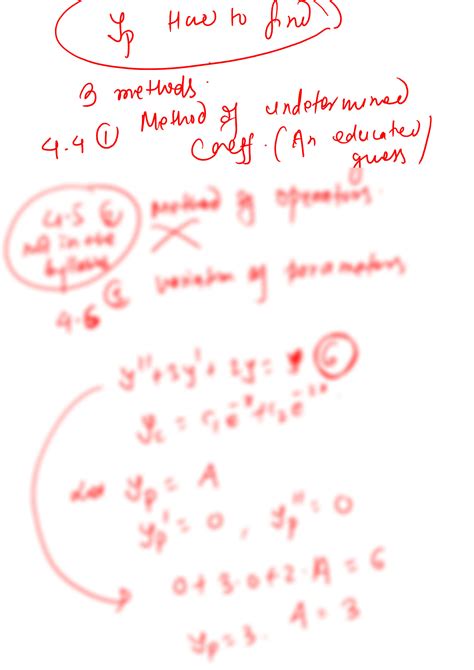 yp Have to find
3 methods.
4.4 ① Method of undetermined
Coeff. (An educated
guess)
4.5 ②
not in the
syllabus
Method of operators
4.6 ③ variation of parameters
y''+3y'+2y = 6
yc = c₁e⁻ˣ+c₂e⁻²ˣ
Let yp = A
yp' = 0, yp'' = 0
0+3·0+2·A = 6
A = 3
yp = 3.